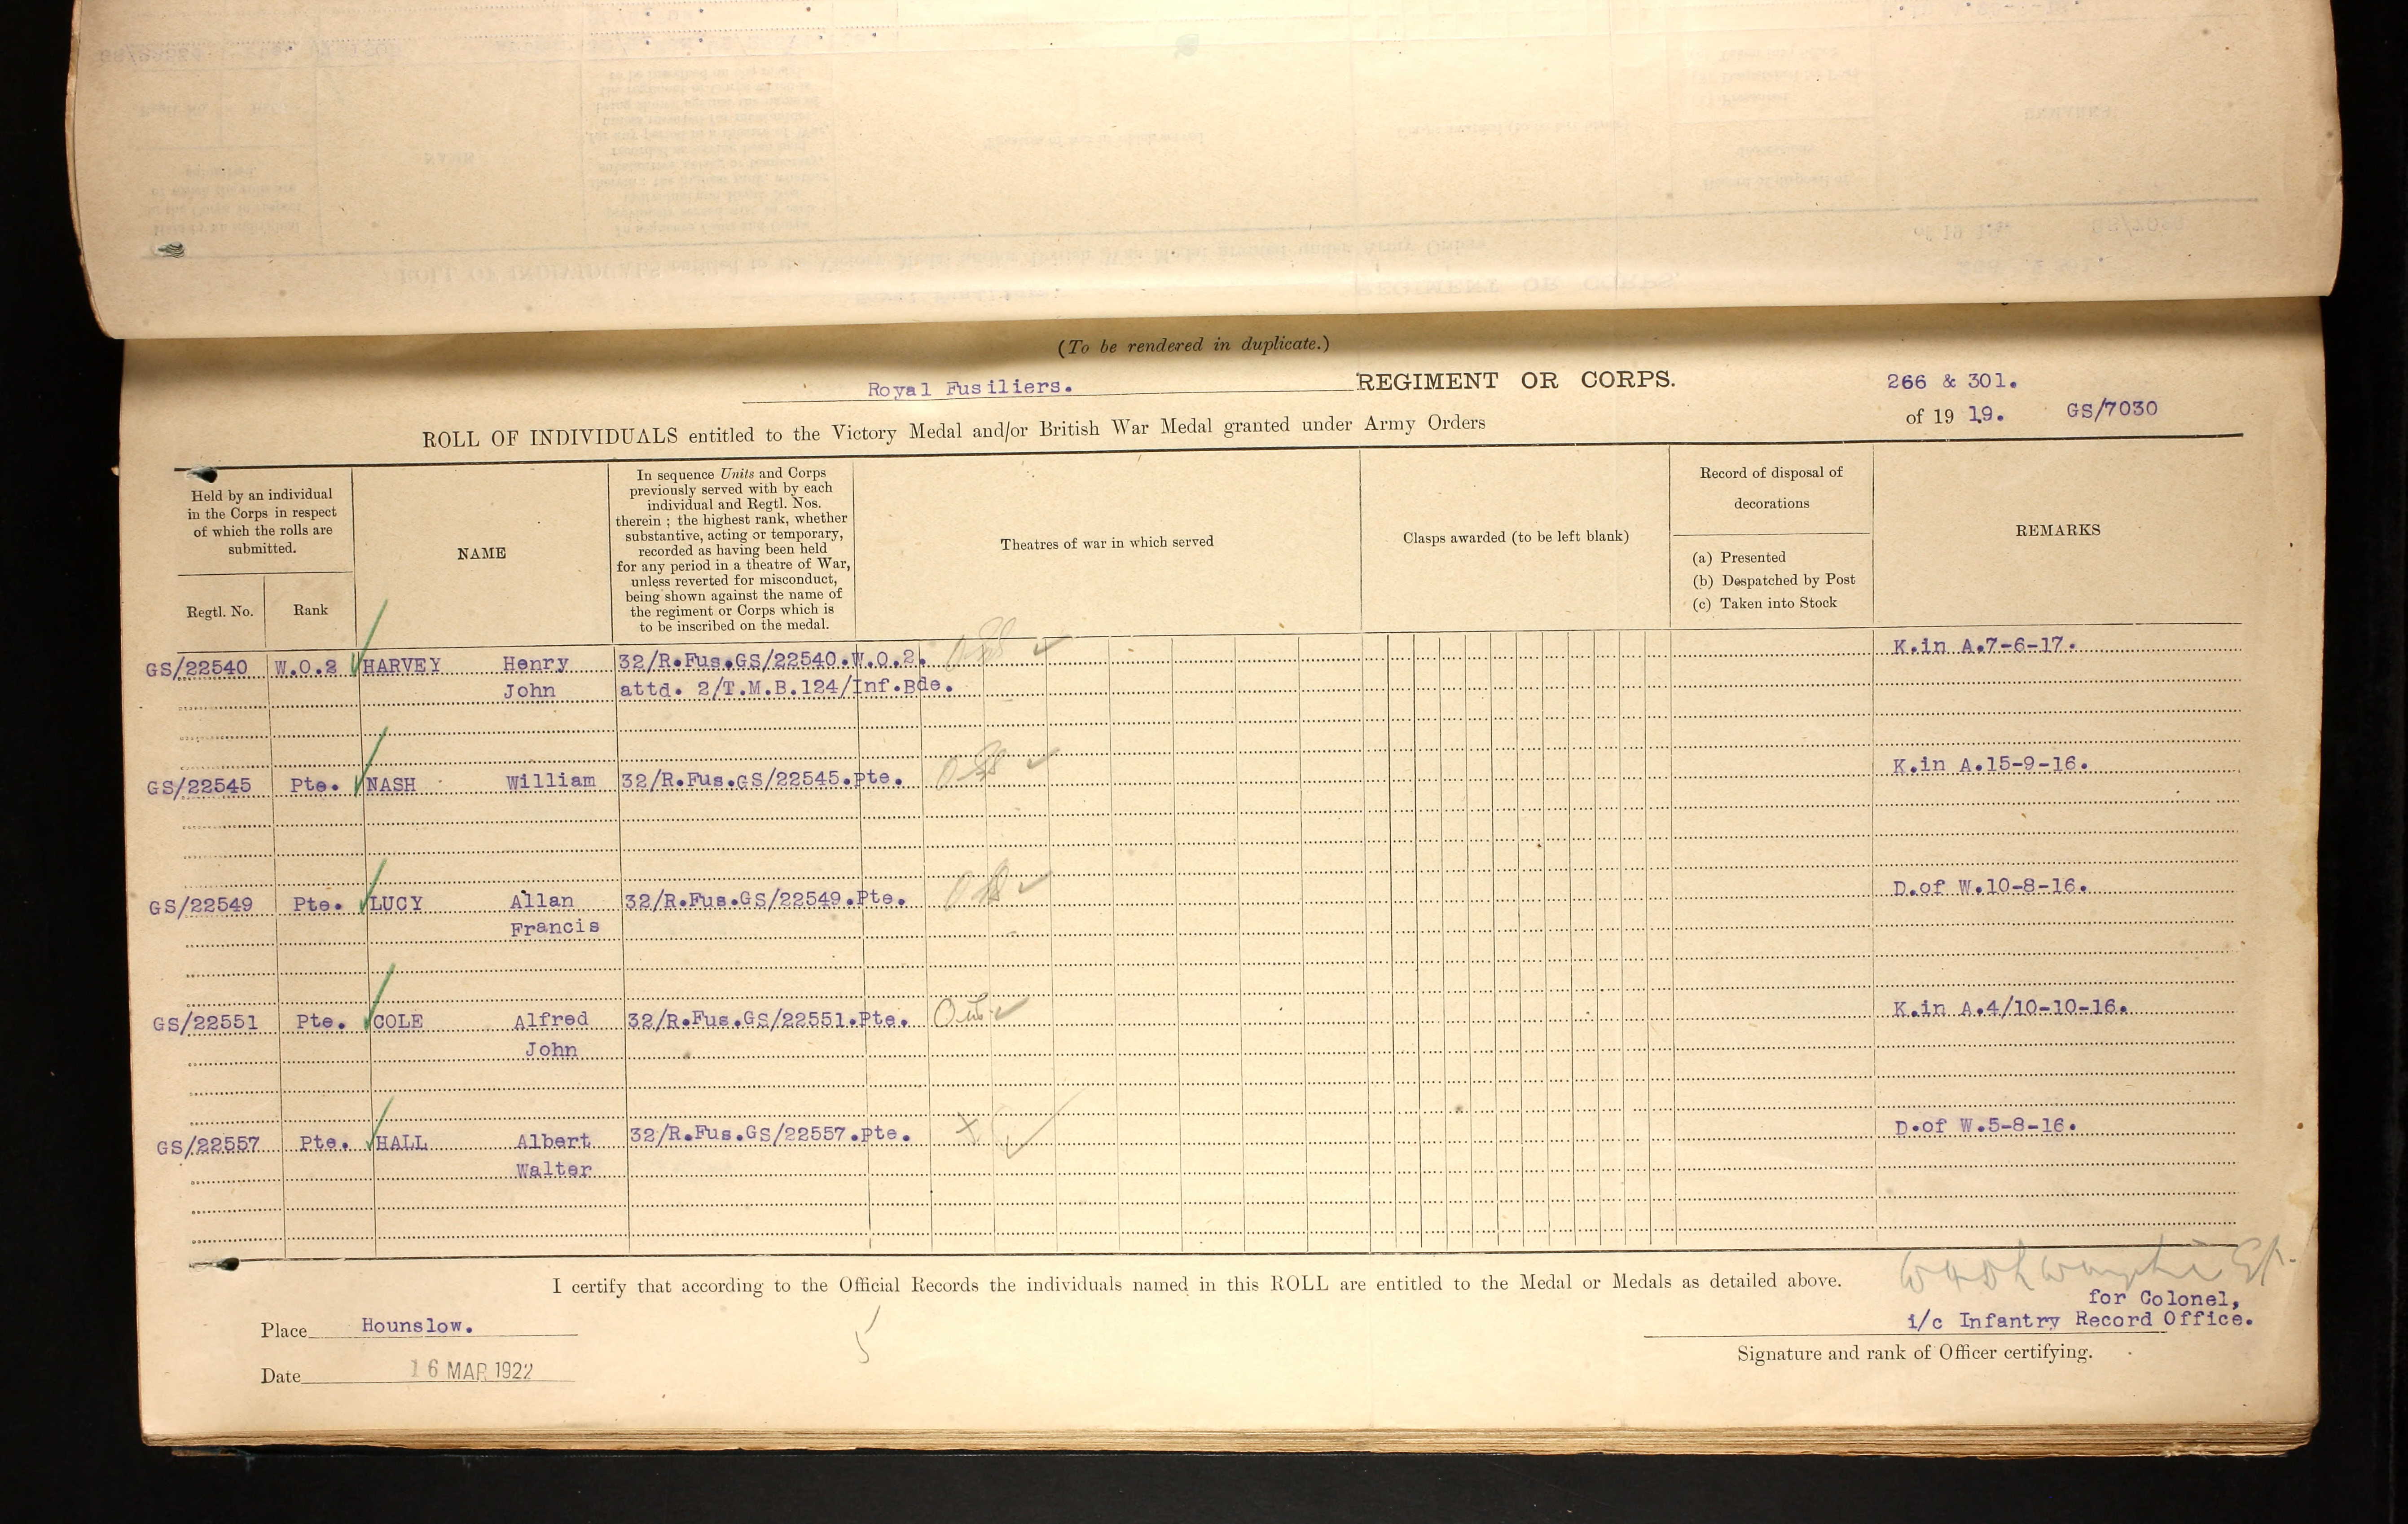 (To be rendered in duplicate.)
Royal Fusiliers. REGIMENT OR CORPS. 266 & 301.
ROLL OF INDIVIDUALS entitled to the Victory Medal and/or British War Medal granted under Army Orders of 19 19. GS/7030
Held by an individual
in the Corps in respect
of which the rolls are
submitted.
Regtl. No. Rank
NAME
In sequence Units and Corps
previously served with by each
individual and Regtl. Nos.
therein ; the highest rank, whether
substantive, acting or temporary,
recorded as having been held
for any period in a theatre of War,
unless reverted for misconduct,
being shown against the name of
the regiment or Corps which is
to be inscribed on the medal.
Theatres of war in which served
Clasps awarded (to be left blank)
Record of disposal of
decorations
(a) Presented
(b) Despatched by Post
(c) Taken into Stock
REMARKS
GS/22540 W.O.2 HARVEY Henry 32/R.Fus.GS/22540.W.O.2. K.in A.7-6-17.
John attd. 2/T.M.B.124/Inf.Bde.
GS/22545 Pte. NASH William 32/R.Fus.GS/22545.Pte. K.in A.15-9-16.
GS/22549 Pte. LUCY Allan 32/R.Fus.GS/22549.Pte. D.of W.10-8-16.
Francis
GS/22551 Pte. COLE Alfred 32/R.Fus.GS/22551.Pte. K.in A.4/10-10-16.
John
GS/22557 Pte. HALL Albert 32/R.Fus.GS/22557.Pte. X D.of W.5-8-16.
Walter
I certify that according to the Official Records the individuals named in this ROLL are entitled to the Medal or Medals as detailed above.
for Colonel,
Place Hounslow. i/c Infantry Record Office.
5
Signature and rank of Officer certifying.
Date 16 MAR 1922